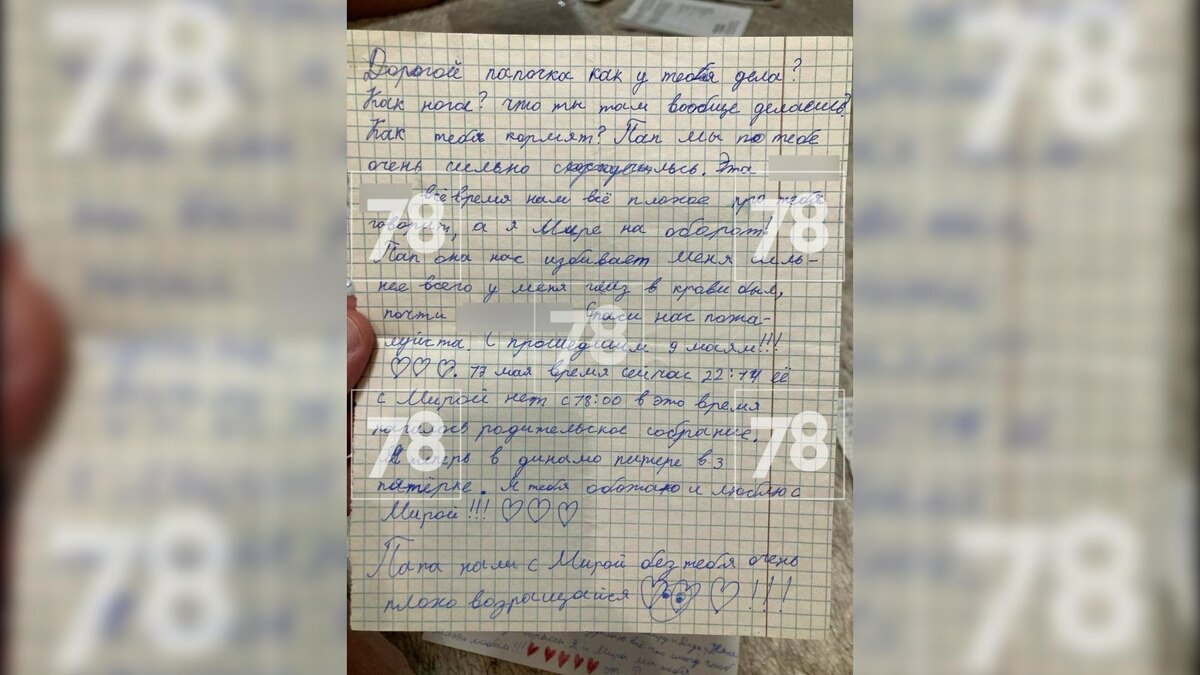 Дорогой папочка как у тебя дела?
Как нога? что ты там вообще делаешь?
Как тебя кормят? Пап мы по тебе
очень сильно Эта
всё время нам всё плохое про тебя
говорит, а я Мире на оборот.
Пап она нас избивает меня силь-
нее всего у меня глаз в крови был,
почти Спаси нас пожа-
луйста. С прошедшим 9 маям!!!
♡♡♡. 17 мая время сейчас 22:14 её
с Мирой нет с 18:00 в это время
началось родительское собрание.
Я теперь в динамо питере в 3
пятёрке. Я тебя обожаю и люблю с
Мирой!!! ♡♡♡
Папа нам с Мирой без тебя очень
плохо возращайся ♡♡♡!!!
78
78
78
78
78
78
78
78
78